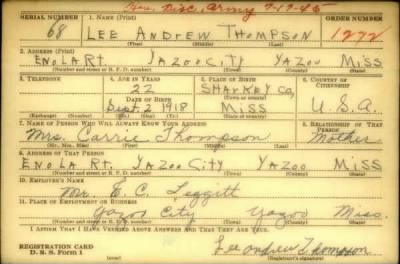 Hon. Disc. Army 9-17-45
SERIAL NUMBER 1. NAME (Print) ORDER NUMBER
68 LEE ANDREW THOMPSON 1272
(First) (Middle) (Last)
2. ADDRESS (Print)
ENOLA RT. YAZOO CITY YAZOO MISS
(Number and street or R. F. D. number) (Town) (County) (State)
3. TELEPHONE 4. AGE IN YEARS 5. PLACE OF BIRTH 6. COUNTRY OF CITIZENSHIP
22 SHARKEY CO,
DATE OF BIRTH (Town or county)
Sept. 2 1918 MISS U.S.A.
(Exchange) (Number) (Mo.) (Day) (Yr.) (State or country)
7. NAME OF PERSON WHO WILL ALWAYS KNOW YOUR ADDRESS 8. RELATIONSHIP OF THAT PERSON
Mrs. Carrie Thompson Mother
(Mr., Mrs., Miss) (First) (Middle) (Last)
9. ADDRESS OF THAT PERSON
ENOLA RT. YAZOO CITY YAZOO MISS
(Number and street or R. F. D. number) (Town) (County) (State)
10. EMPLOYER'S NAME
Mr. E. C.
11. PLACE OF EMPLOYMENT OR BUSINESS
Yazoo City Yazoo Miss.
(Number and street or R. F. D. number) (Town) (County) (State)
I AFFIRM THAT I HAVE VERIFIED ABOVE ANSWERS AND THAT THEY ARE TRUE.
REGISTRATION CARD
D. S. S. Form 1 Lee andrew Thompson
(over) (Registrant's signature)